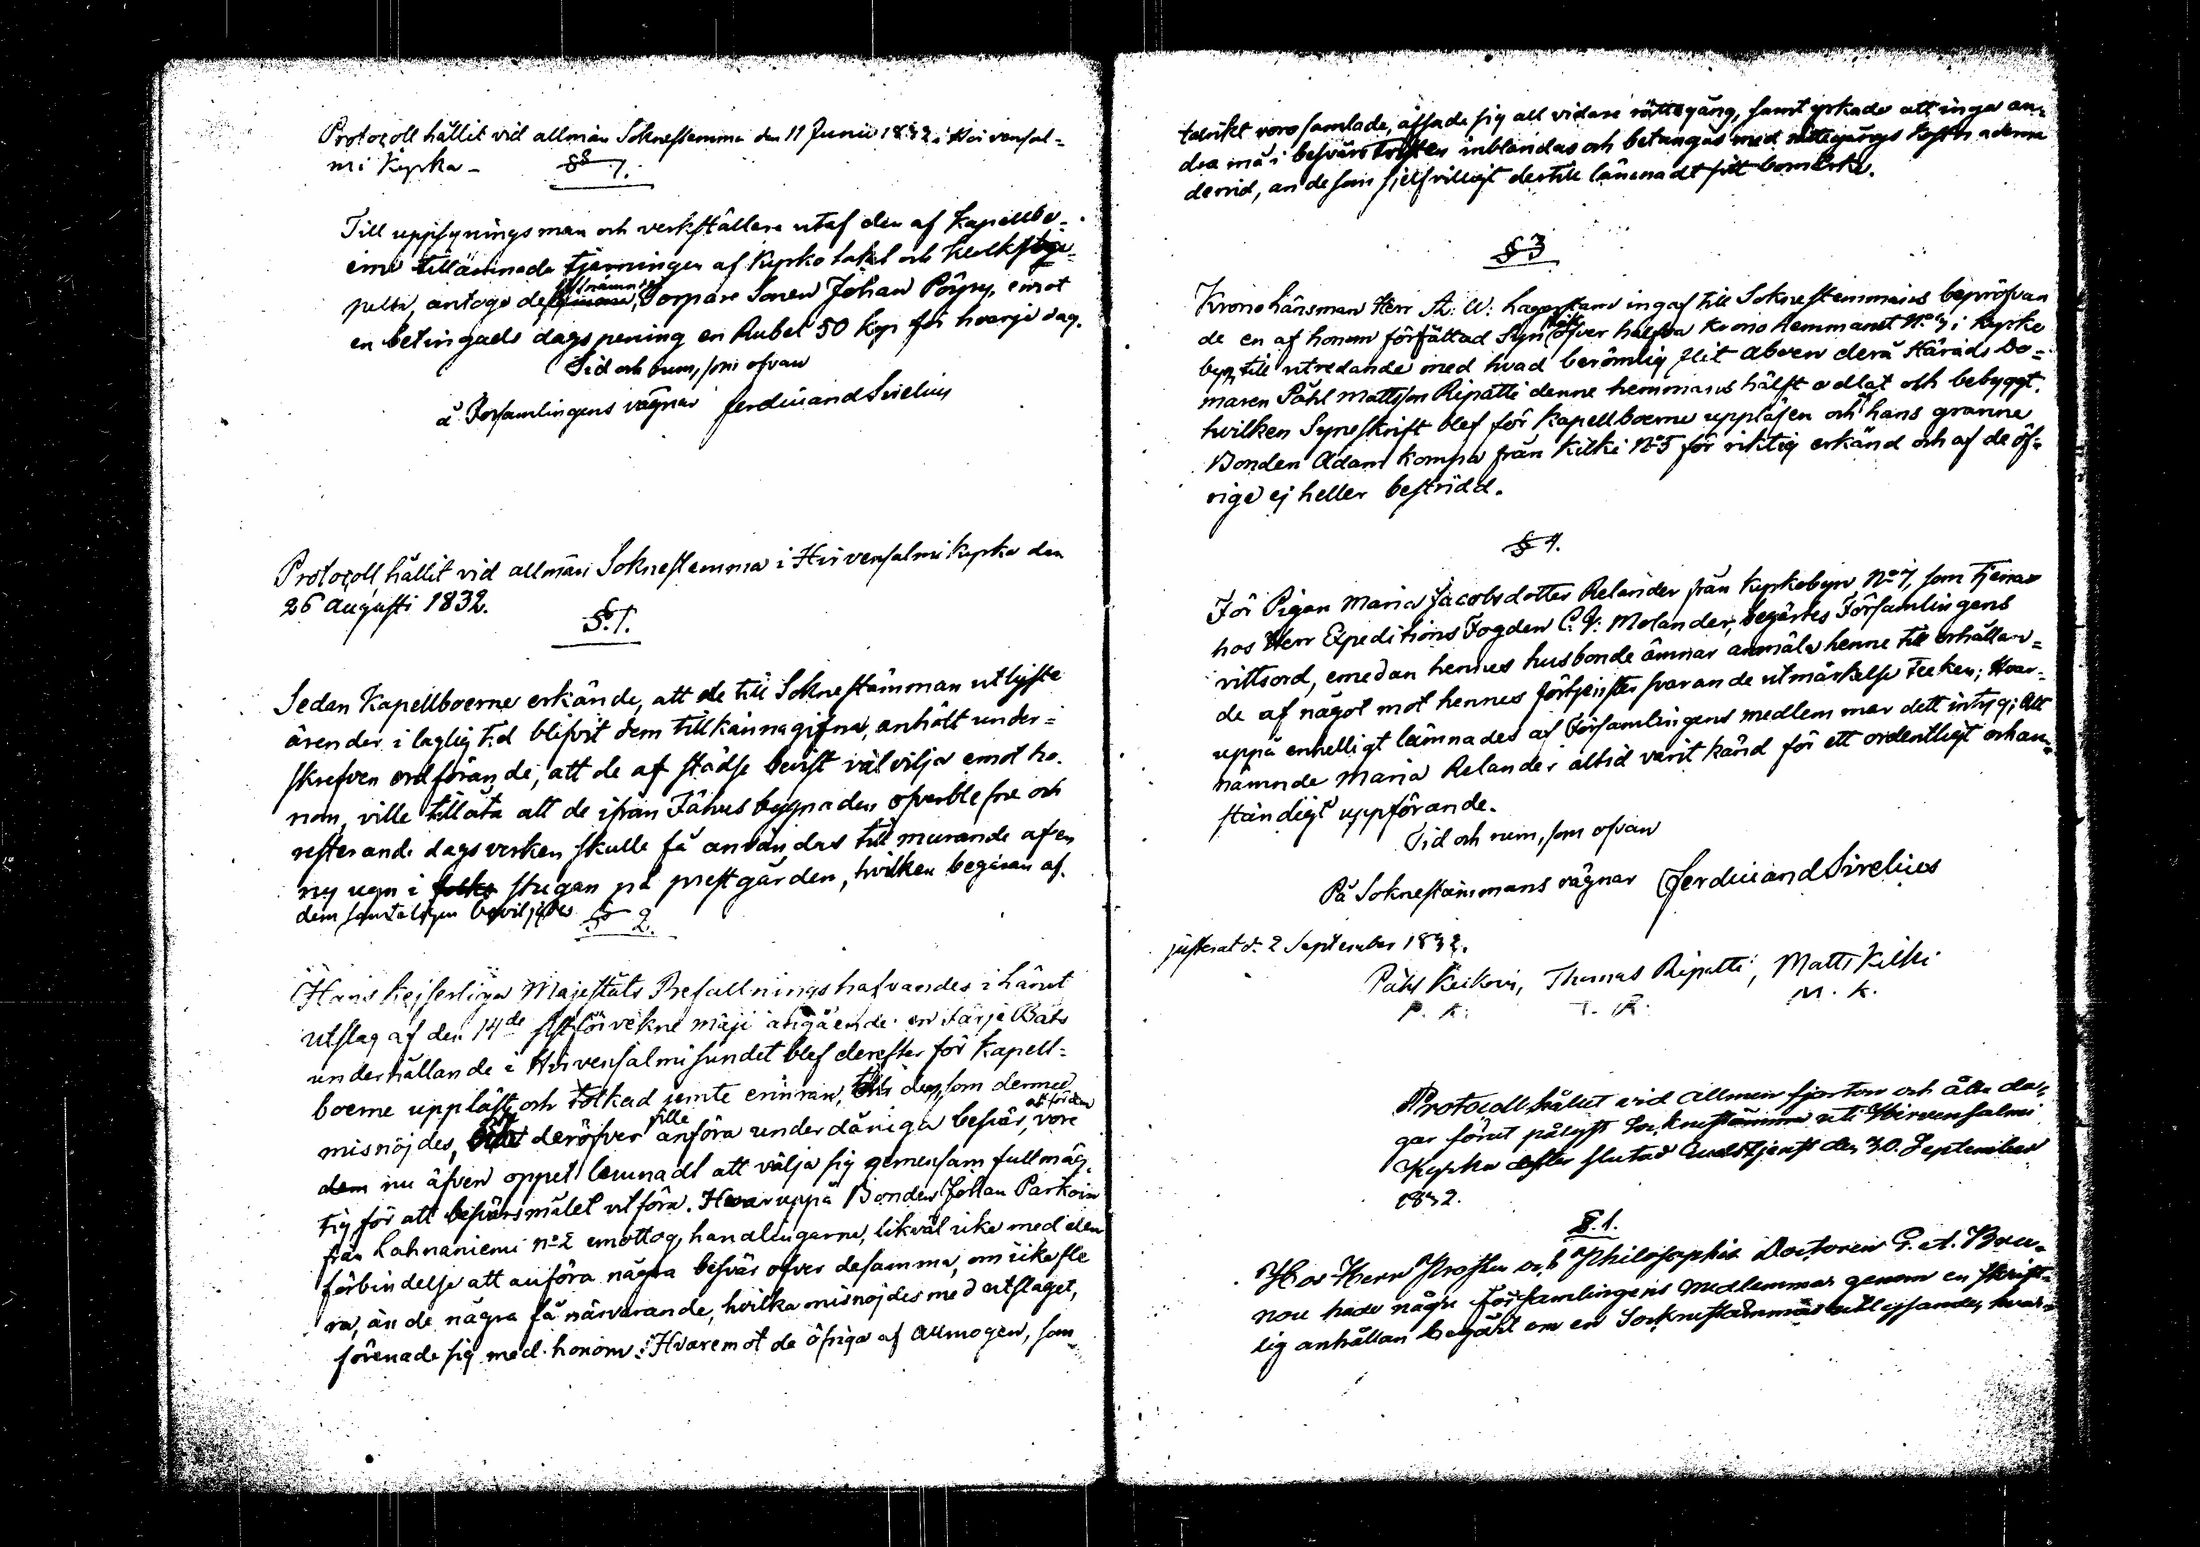 Protocoll hållit vid allmän Soknestemma den 11 Junii 1832 i Hirvensal=
mi Kyrka -
§ 1.
Till uppsynings man och verkställare utaf den af Kapellbo=
erne tillämnade tjärningen af Kyrko taket och Klocksta=
peln, antogs Torpare Sonen Johan Pöyry, emot
en betingads dagspening en Rubel 50 kop för hvarje dag.
Tid och rum, som ofvan
å Församlingens vägnar Ferdinand Sirelius
Protocoll hållit vid allmän Soknestemma i Hirvensalmi Kyrka den
26 Augusti 1832.
§. 1.
Sedan Kapellboerne erkände, att de till Soknestämman utlyste
ärender i laglig tid blifvit dem tillkännagifna, anhölt under=
skrefven ordförande, att de af städse bevist välvilja emot ho=
nom, ville tillåta att de ifrån Fähus byggnaden öfverblefne och
resterande dagsverken skulle få användas till murande af en
ny ugn i stugan på prestgården, hvilken begäran af
dem samtelgen beviljades
§ 2.
Hans Kejserliga Majestäts Befallningshafvandes i länet
utslag af den 14de sistförvekne Maji angående en Färje Båts
underhållande i Hirvensalmi sundet blef derefter för Kapell=
boerne uppläst och tolkad jemte erinran, den, som dermed
misnöjdes, deröfver ville anföra underdåniga besvär, att för den vore
nu äfven öppet lemnadt att välja sig gemensam fullmäg=
tig för att besvärsmålet utföra. Hvaruppå Bonden Johan Parkoin
från Lahnaniemi No 2 emottog handlingarne, likväl icke med den
förbindelse att anföra några besvär öfver desamma, om icke fle
ra, än de några få närvarande, hvilka misnöjdes med utslaget,
förenade sig med honom: Hvaremot de öfriga af Allmogen, som
talrikt voro samlade, afsade sig all vidare rättegång, samt yrkade att inga an=
dra må i besvärs inblandas och betungas med rättegångs
dervid, än de som sjelfvilligt dertill lämnadt sitt bomärke.
§ 3
Krono länsman Herr A: W: Lagerstam ingaf till Soknestemmans bepröfvan
de en af honom författad Syn skrift öfver halfva Krono hemmanet No 4 i Kyrko
byn, till utredande med hvad berömlig flit Åboen derå Härads Do=
maren Påhl Mattsson Ripatti denne hemmans hälft odlat och bebyggt.
hvilken Syneskrift blef för Kapellboerne uppläsen och af hans granne
Bonden Adam Kompa från Kilki No 5 för riktig erkänd och af de öf=
rige ej heller bestridd.
§ 4.
För Pigan Maria Jacobsdotter Relander från Kyrkobyn No 7, som tjenar
hos Herr Expeditions Fogden C. G: Molander, begärtes Församlingens
vittsord, emedan hennes husbonde ämnar anmäla henne till erhållan=
de af något mot hennes förtjenster svarande utmärkelse tecken; Hvar=
uppå enhelligt lämnades af Församlingens medlemmar dett intyg; Att
nämnde Maria Relander altid varit känd för ett ordentligt och an=
ständigt uppförande.
Tid och rum, som ofvan
På Soknestämmans vägnar Ferdinand Sirelius
justerat d. 2 September 1832.
Påhl Keikoin, Thomas Ripatti, Matts Kilki
P. K. T. R. M. K.
Protocoll hållet vid allmen fjorton och åtta da=
gar förut pålyst Sockenstämma uti Hirvensalmi
Kyrka efter slutad Gudstjenst den 30. September
1832.
§. 1.
Hos Herr Prosten och Philosophiæ Doctoren G. A. Bru=
nou hade någre församlingens medlemmar genom en skrift=
lig anhållan begärt om en Socknestämmas utlysande, hvar=